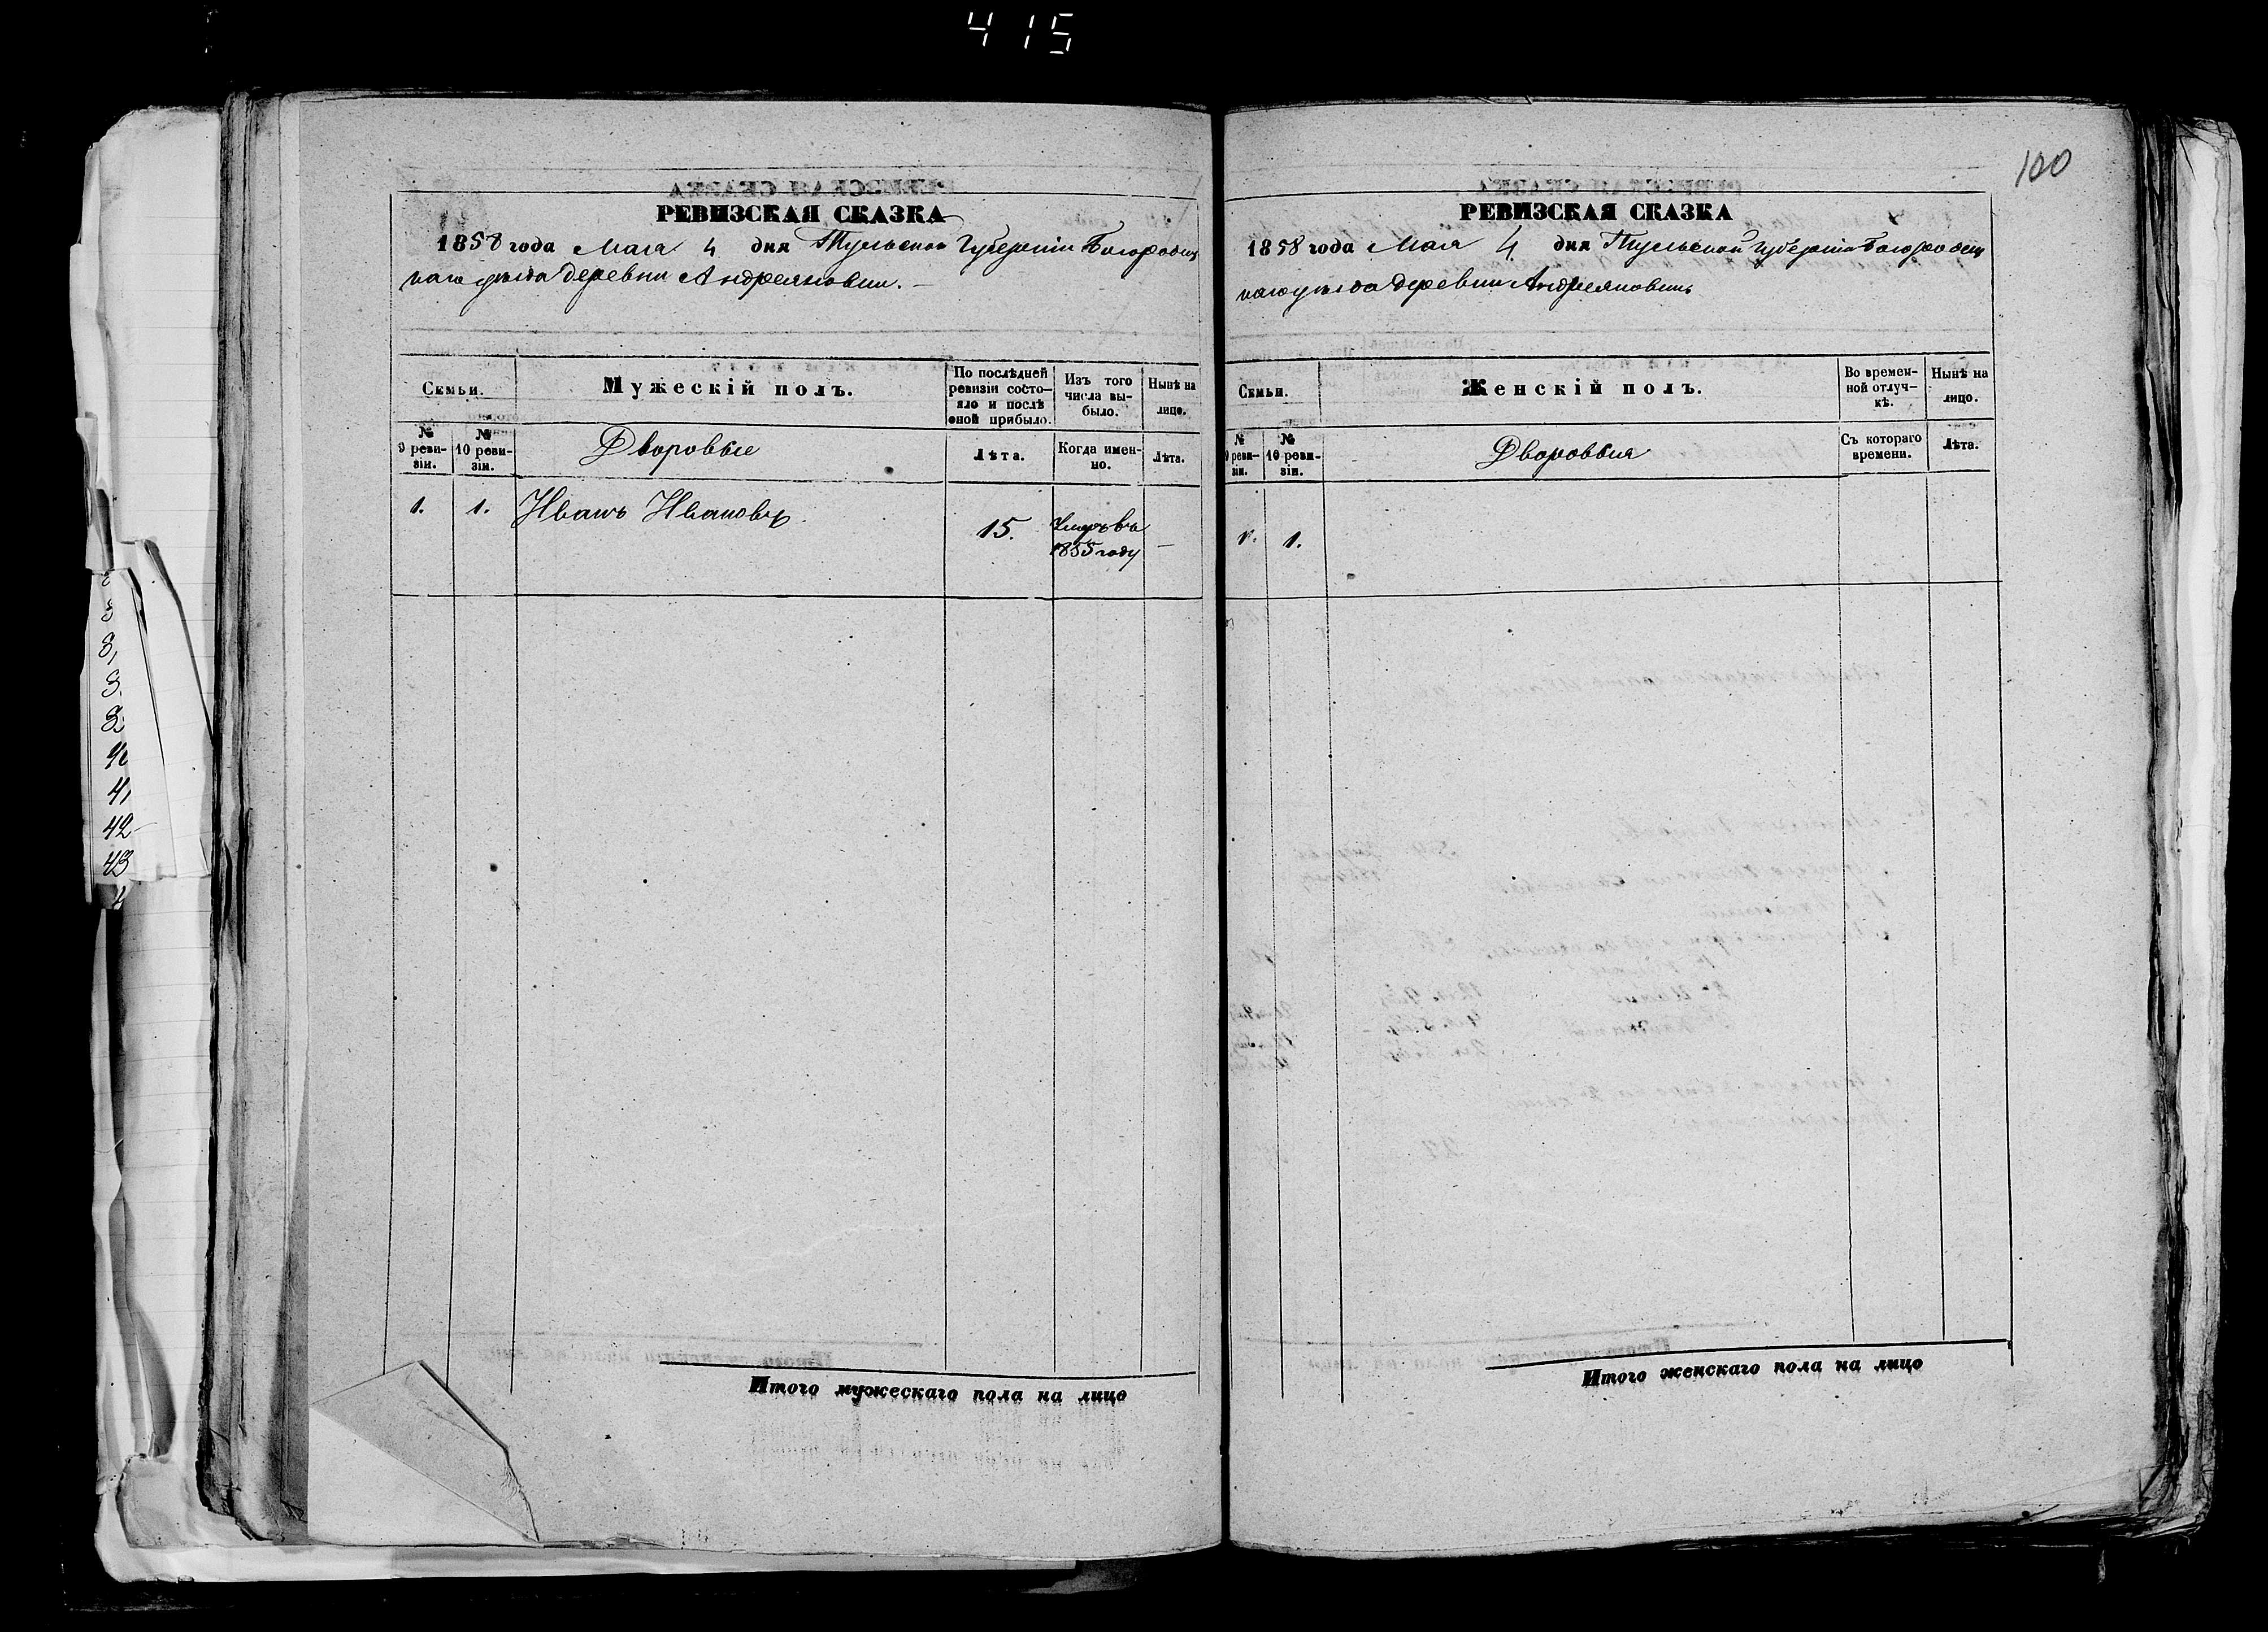 415
100
РЕВИЗСКАЯ СКАЗКА
1858 года Мая 4 дня Тульской Губерніи Богородиц
каго уѣзда деревни Андреяновки.
Семьи.
Мужескій полъ.
По послѣдней ревизіи состо-
яло и послѣ
оной прибыло.
Изъ того
числа вы-
было.
Нынѣ на
лицо.
№
9 реви-
зіи.
№
10 реви-
зіи.
Дворовые
Лѣта.
Когда имен-
но.
Лѣта.
1. 1. Иванъ Ивановъ. 15. Умеръ въ
1855 году —
Итого мужескаго пола на лицо
РЕВИЗСКАЯ СКАЗКА
1858 года Мая 4 дня Тульской Губерніи Богородиц
каго уѣзда деревни Андреяновки
Семьи.
Женскій полъ.
Во времен-
ной отлуч-
кѣ.
Нынѣ на
лицо.
№
9 реви-
зіи.
№
10 реви-
зіи.
Дворовыя
Съ котораго
времени.
Лѣта.
1. 1.
Итого женскаго пола на лицо
41
42
43